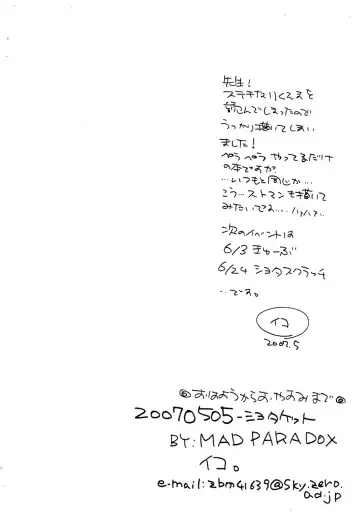 先生!
ステキなりくえすを
読んでしまったので
うっかり描いてしまい
ました!
ペラペラ やってるだけ
の本ですが
…いつもと同じか…
こう…ストマンも描いて
みたいでな…ハァハァ…
次のイベントは
6/3 きゅーぶ
6/24 ショタスクラッチ
…です。
イコ
2007.5
◎おはようからおやすみまで◎
20070505-ショタケット
BY: MAD PARADOX
イコ。
e-mail: zbm41639@sky.zero.
ad.jp